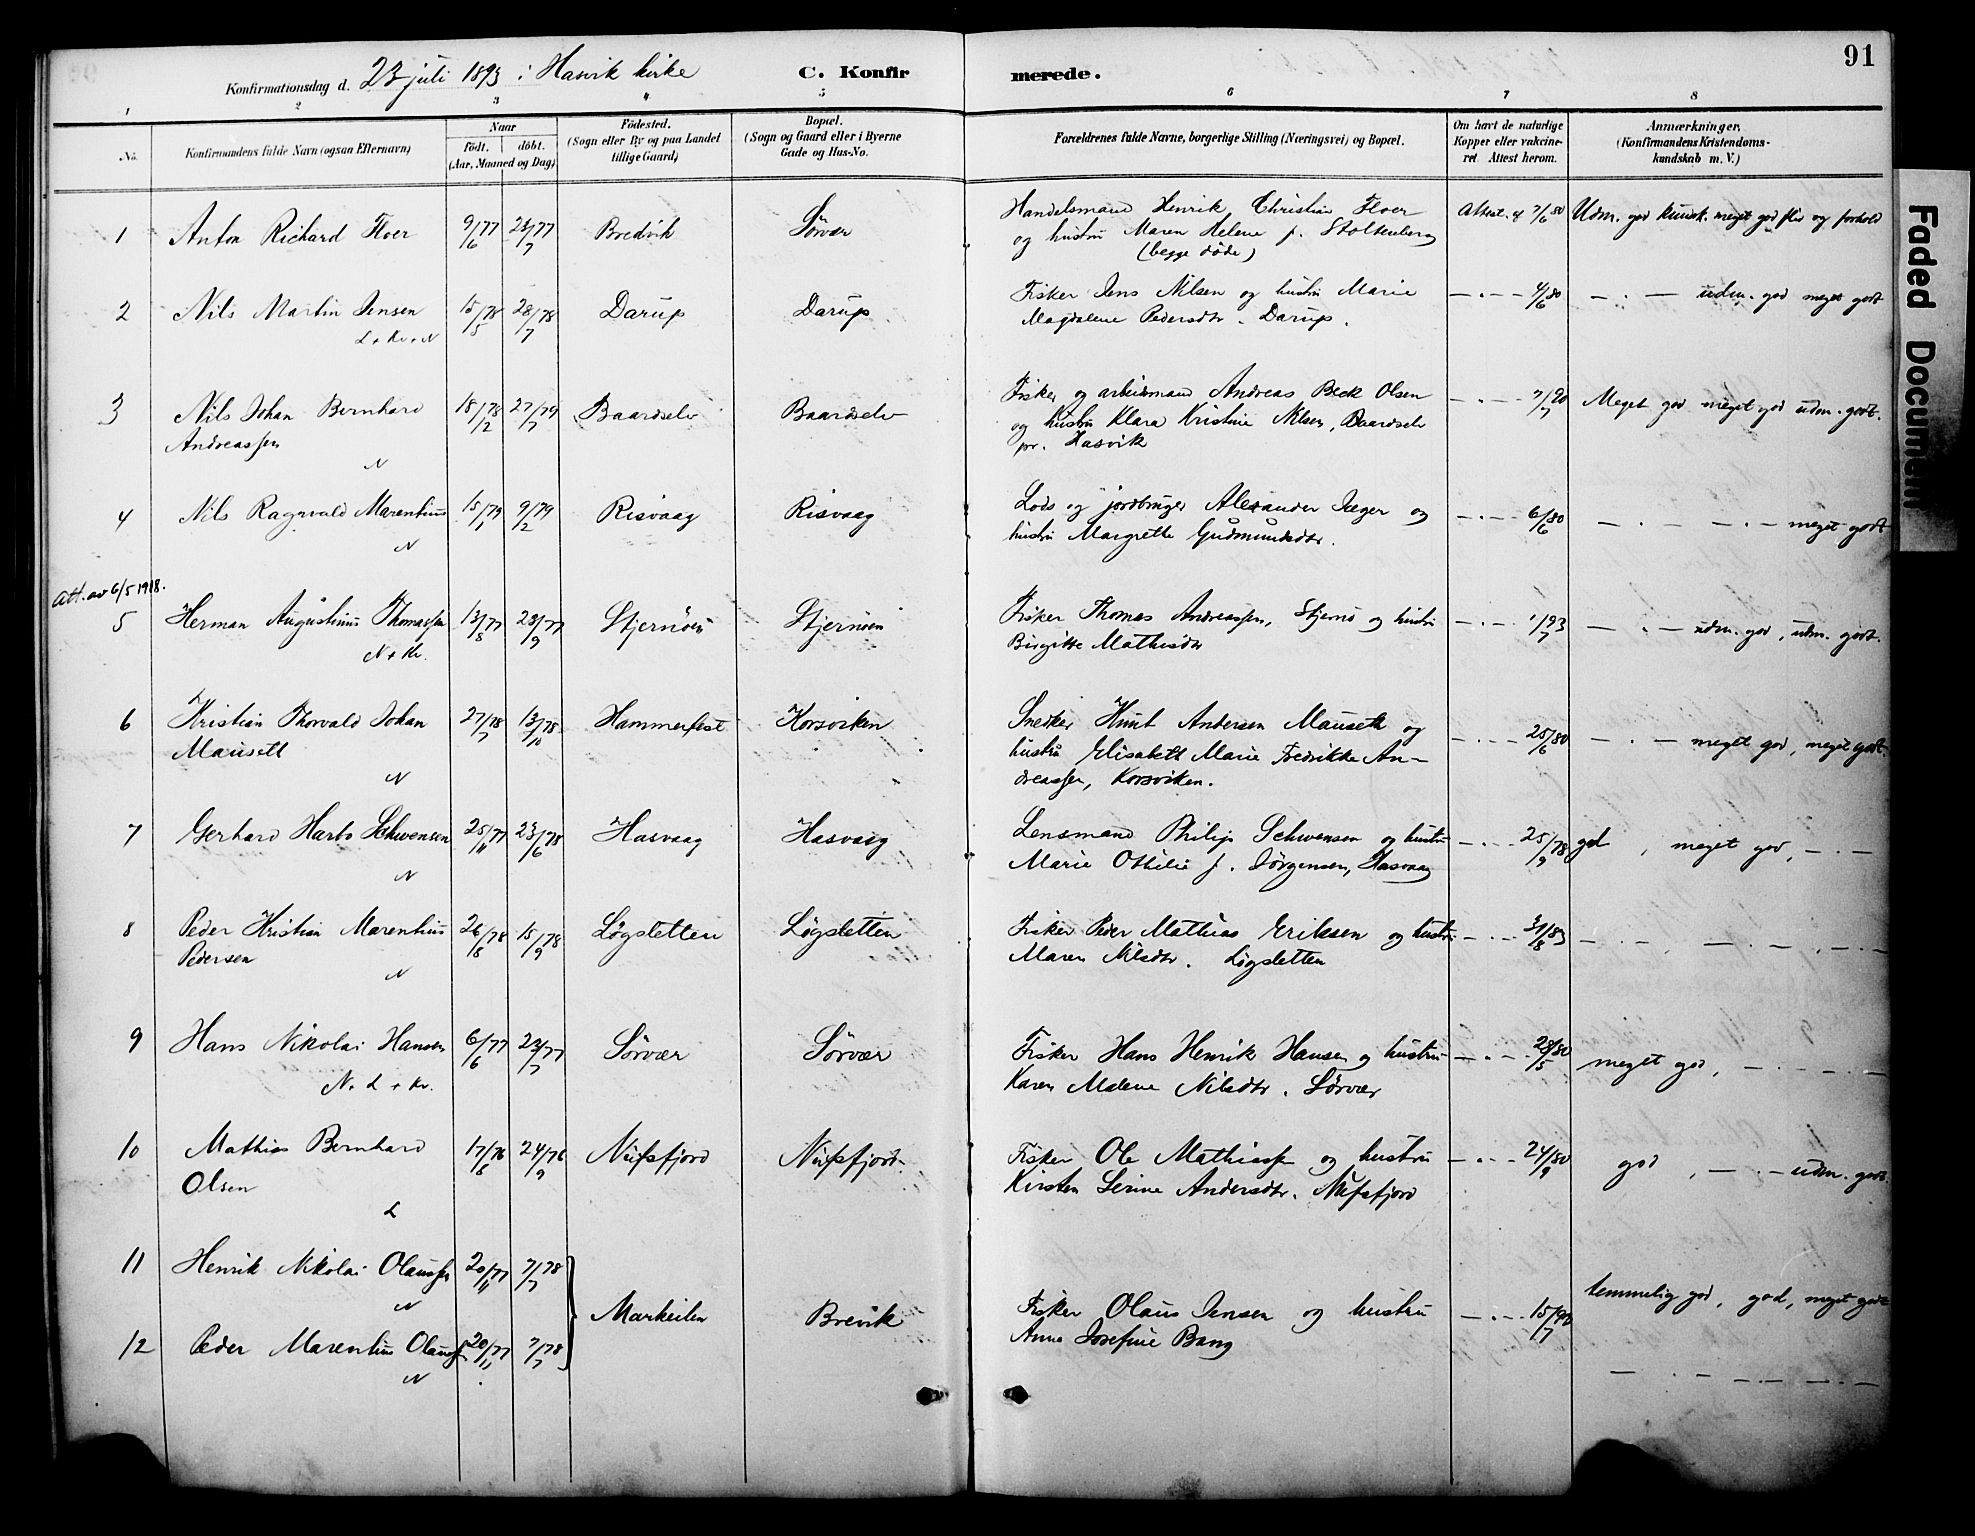 91
Konfirmationsdag d. 23 juli 1893 i Hasvik kirke
C. Konfirmerede.
1 2 3 4 5 6 7 8
No.
Konfirmandens fulde Navn (ogsaa Efternavn)
Naar
födt. döbt.
(Aar, Maaned og Dag)
Födested.
(Sogn eller By og paa Landet
tillige Gaard)
Bopæl.
(Sogn og Gaard eller i Byerne
Gade og Hus-No.
Forældrenes fulde Navne, borgerlige Stilling (Næringsvei) og Bopæl.
Om havt de naturlige
Kopper eller vakcine-
ret. Attest herom.
Anmærkninger,
(Konfirmandens Kristendoms-
kundskab m. V.)
1 Anton Richard Floer 9/6 77 Bredvik Sörvær
Handelsmand Henrik Christian Floer
og hustru Maren Helene f. Stoltenberg
(begge döde)
Attest af 7/6 80 Udm. god kunsk. meget god flid og forhold
2 Nils Martin Jensen 15/5 78 28/7 78 Darup Darup
L + Kv + N
Fisker Jens Nilsen og hustru Marie
Magdalene Pedersdtr. Darup.
— . — 4/6 80 — . — udm. god meget godt
3 Nils Johan Bernhard 18/2 78 27/7 79 Baardselv Baardselv
Andreassen
N
Fisker og arbeidsmand Andreas Beck Olsen
og hustru Klara Kristine Nilsen, Baardselv
pr. Hasvik
— . — Meget god meget god udm. godt.
4 Nils Ragnvald Marentius 15/1 79 9/2 79 Risvaag Risvaag
N
Lods og jordbruger Alexander Jæger og
hustru Margrethe Gudmundsdtr.
— . — 6/6 80 — . — — . — meget godt
Att. av 6/5 1918.
5 Herman Augustinus Thomassen 13/8 77 23/9 77 Stjernöen Stjernöen
N + Kv.
Fisker Thomas Andreassen, Stjernö og hustru
Birgitte Mathisdtr
— . — 1/7 93 — . — udm. god, udm. godt.
6 Kristian Thorvald Johan 27/7 78 13/10 78 Hammerfest Korsviken
Mausett
N
Snedker Knut Andersen Mauseth og
hustru Elisabeth Marie Fredrikke An-
dreassen, Korsviken.
— . — 25/6 80 — . — meget god, meget godt.
7 Gerhard Harbo Schwensen 25/11 77 23/6 78 Hasvaag Hasvaag
N
Lensmand Philip Schwensen og hustru
Marie Othilie f. Jörgensen, Hasvaag
— . — 25/9 78 god, meget god, — . —
8 Peder Kristian Marentius 26/8 78 15/9 78 Lögsletten Lögsletten
Pedersen
N
Fisker Peder Mathias Eriksen og hustru
Maren Nilsdtr. Lögsletten
— . — 31/8 83 — . — , — . — , — . —
9 Hans Nikolai Hansen 6/6 77 22/7 77 Sörvær Sörvær
N + L + Kv.
Fisker Hans Henrik Hansen og hustru
Karen Malene Nilsdtr. Sörvær
— . — 28/5 80 meget god, — . — — . —
10 Mathias Bernhard 17/8 76 24/9 76 Nufsfjord Nufsfjord.
Olsen
L
Fisker Ole Mathiassen og hustru
Kirsten Serine Andersdtr. Nufsfjord
— . — 24/9 80 god , — . — udm. godt.
11 Henrik Nikolai Olaussen 20/11 77 7/7 78
N
Markeilen Brevik
Fisker Olaus Jensen og hustru
Anna Josefine Bang
— . — temmelig god, god, meget godt
12 Peder Marentius Olaussen 20/11 77 7/7 78
N
— . — — . — — . —
Faded Document